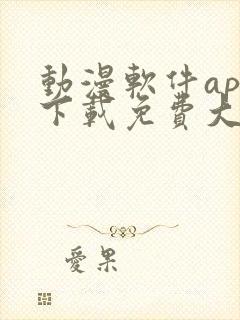 動漫軟件ap
下載免費大
愛果